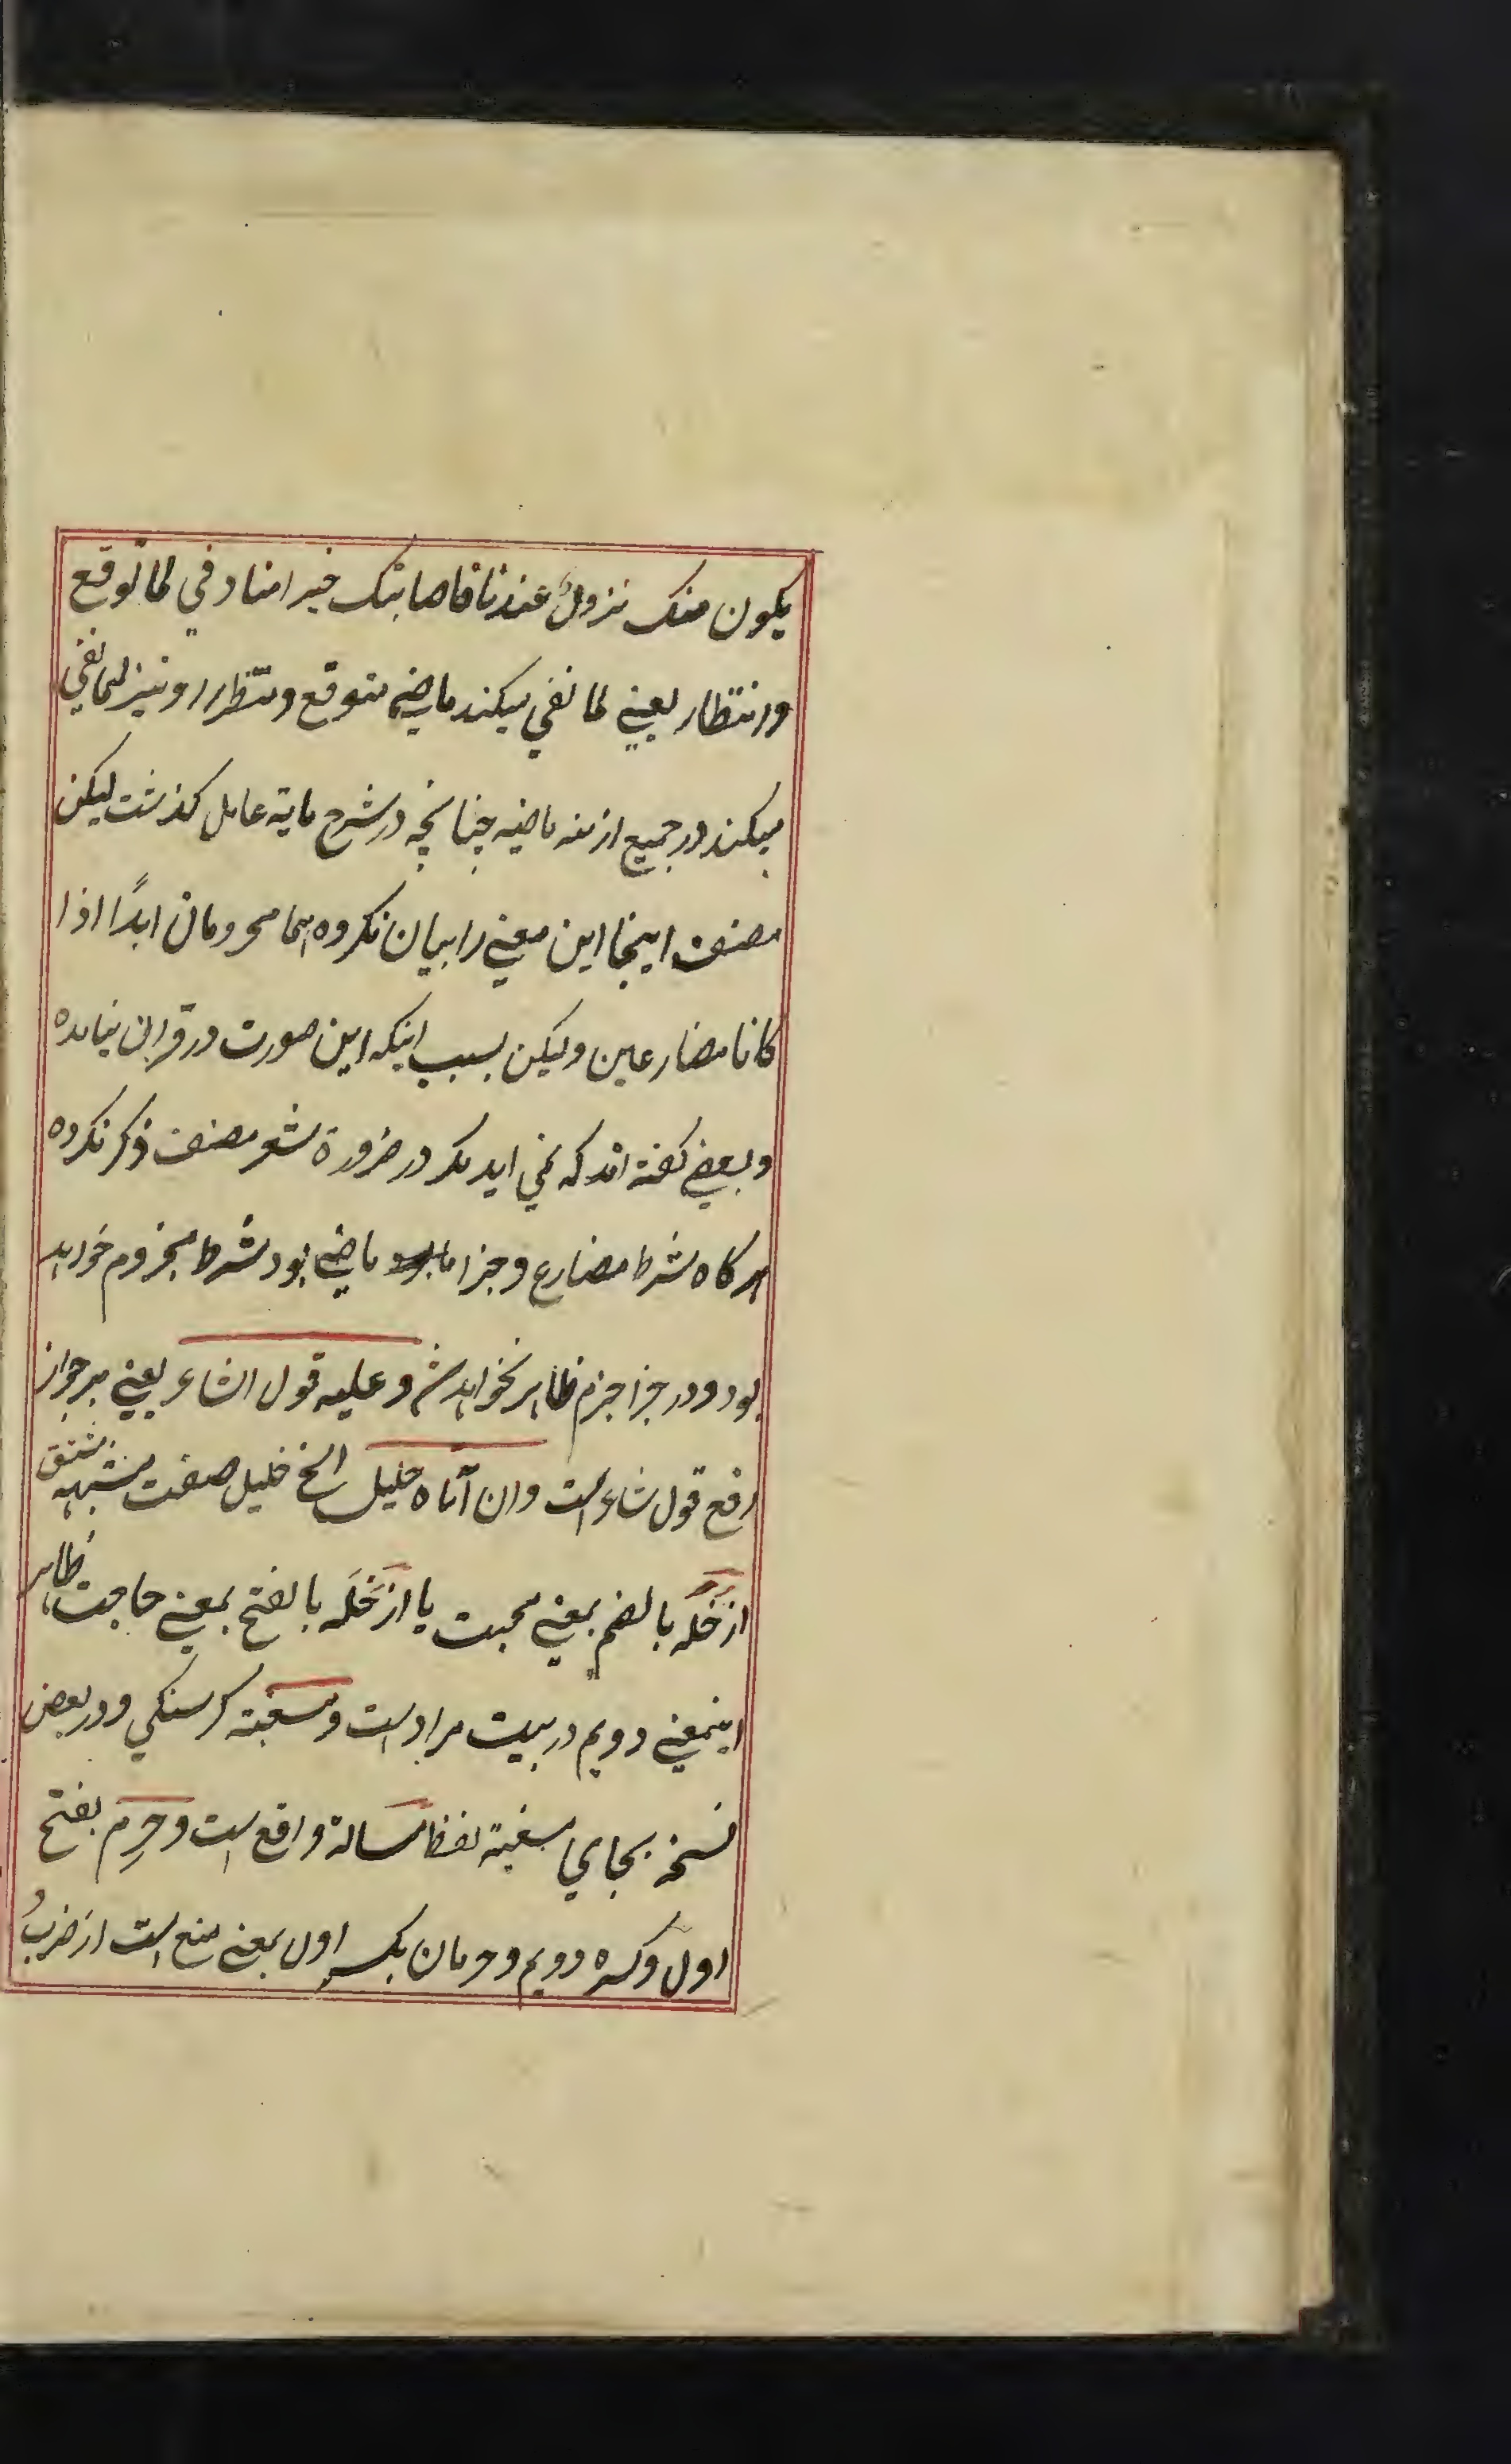 یکون منک نزول عندنا فاصابتک خیر امنا و في لما توقع
و انتظار یعنے لما نفي میکند ماضے متوقع و منتظر را و نیز لما نفي
میکند در جمیع ازمنه ماضیه چنانچه در شرح مایة عامل کذشت لیکن
مصنف اینجا این معنے را بیان نکرده اسما مجزومان ابدًا اذا
کانا مضارعین و لیکن بسبب اینکه این صورت در قران نیامده
و بعضے کفته اند که نمي اید مکر در ضرورة شعر مصنف ذکر نکرده
هرکاه شرط مضارع و جزا ماضے بود شرط مجزوم خواهد
بود و در جزا جزم ظاهر نخواهد شد و علیه قول الشاعر یعنے بر جواز
رفع قول شاعر است و ان اتاه خلیل الخ خلیل صفت مشبهه مشتق
از خُله بالضم بمعنے محبت یا از خَله بالفتح بمعنے حاجت ظاهر
اینمعنے دویم در بیت مراد است و مسغبته کرسنکي و در بعض
نسخه بجاي مسغبته لفظ مسالة واقع است و حرِم بفتح
اول و کسره دویم و حرمان بکسر اول بمعنے منع است از ضربُ